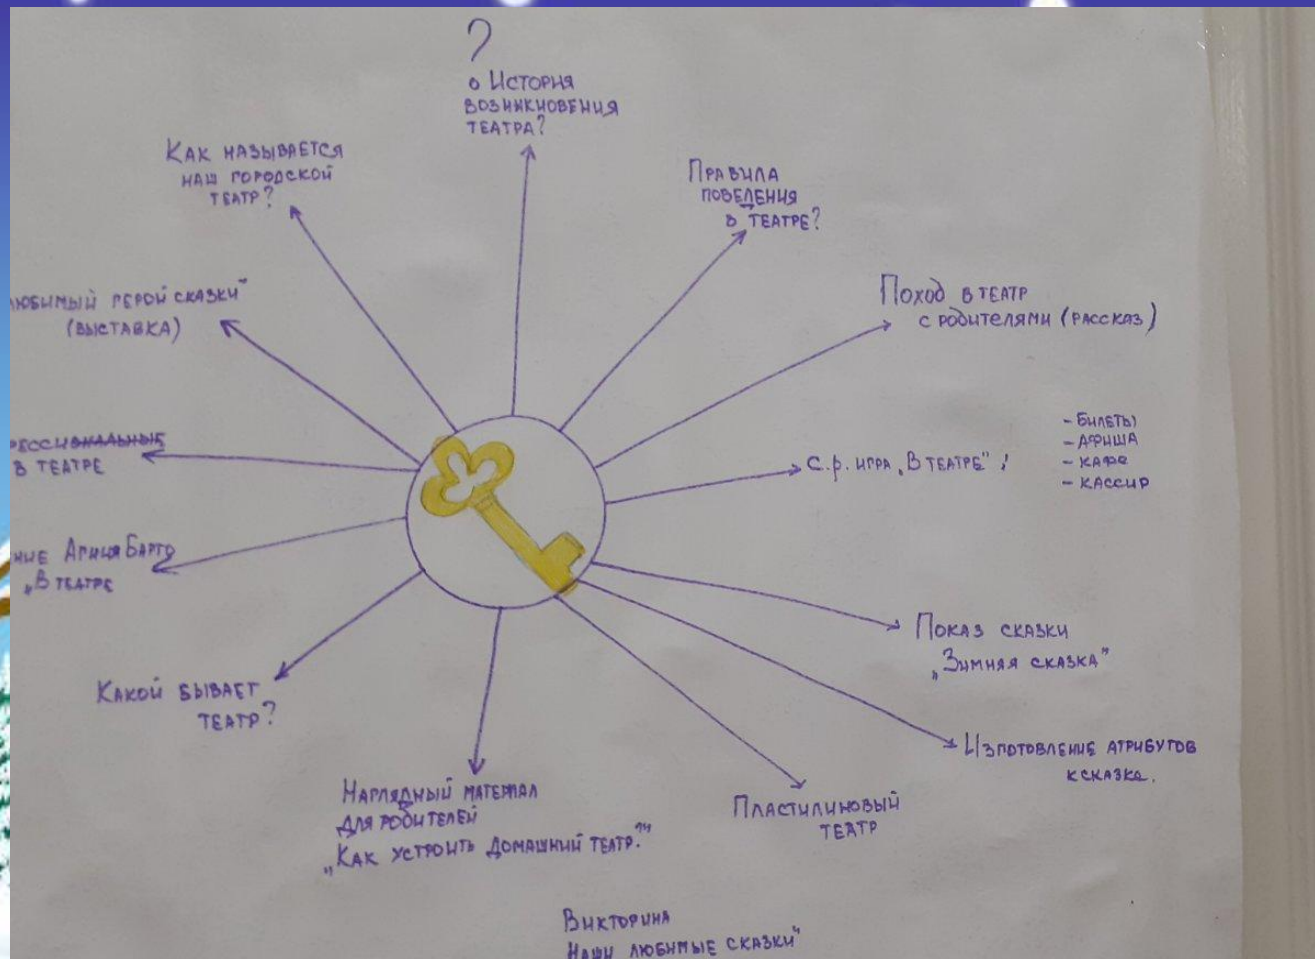 ?
о История
возникновения
театра?
Как называется
наш городской
театр?
Правила
поведения
в театре?
Поход в театр
с родителями (рассказ)
любимый герой сказки"
(выставка)
- билеты
- афиша
- кафе
- кассир
с.р. игра „В театре" !
в театре
Агния Барто
„В театре
Показ сказки
„Зимняя сказка"
Какой бывает
театр?
Изготовление атрибутов
к сказке.
Наглядный материал
для родителей
„Как устроить домашний театр?"
Пластилиновый
театр
Викторина
Наши любимые сказки"